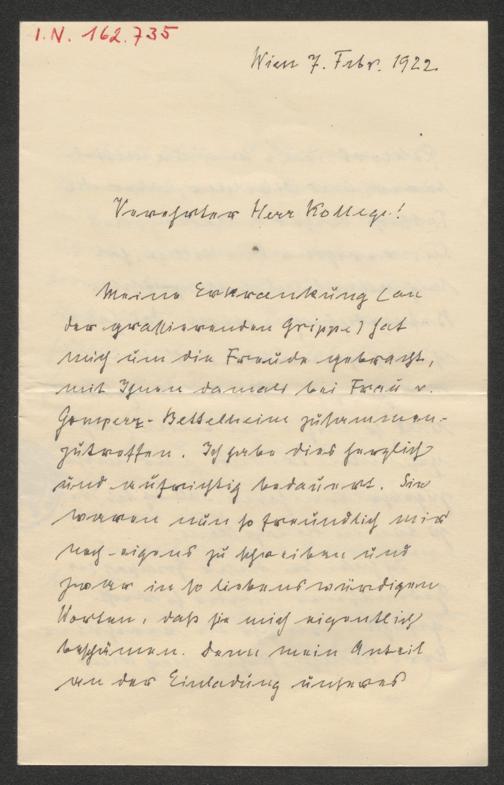 I.N. 162.735
Wien 7. Febr. 1922.
Verehrter Herr Kollege!
Meine Erkrankung (an
der grassierenden Grippe) hat
mich um die Freude gebracht,
mit Ihnen damals bei Frau v.
Gomperz-Bettelheim zusammen-
zutreffen. Ich habe dies herzlich
und aufrichtig bedauert. Sie
waren nun so freundlich mir
noch eigens zu schreiben und
zwar in so liebenswürdigen
Worten, daß sie mich eigentlich
beschämen. Denn mein Anteil
an der Einladung unseres